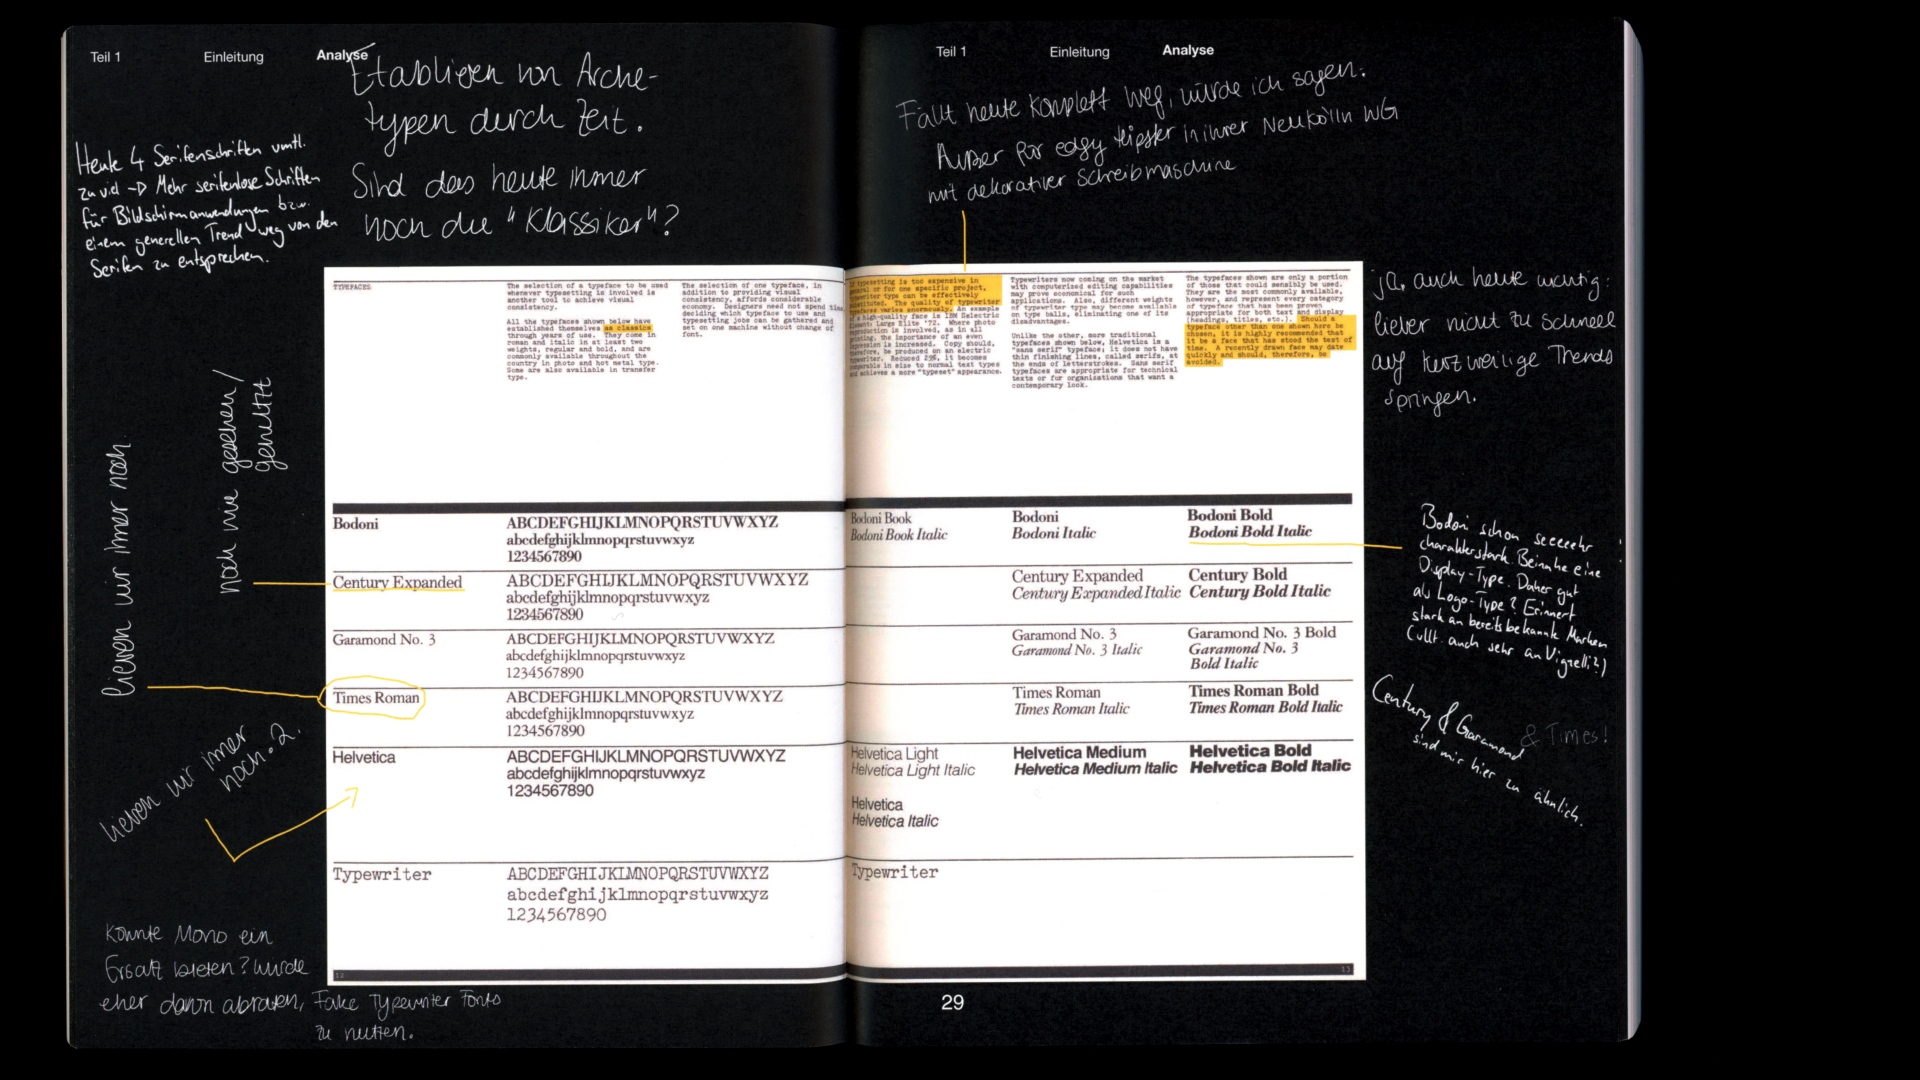 Teil 1 Einleitung Analyse
Etablieren von Arche-
typen durch Zeit.
Sind das heute immer
noch die "Klassiker"?
Heute 4 Serifenschriften vmtl.
zu viel -> Mehr serifenlose Schriften
für Bildschirmanwendungen bzw.
einem generellen Trend weg von den
Serifen zu entsprechen.
noch nie gesehen/
genutzt
lieben wir immer noch
lieben wir immer
noch. 2.
Könnte Mono ein
Ersatz bieten? Würde
eher davon abraten, Fake Typewriter Fonts
zu nutzen.
TYPEFACES
The selection of a typeface to be used
whenever typesetting is involved is
another tool to achieve visual
consistency.
All the typefaces shown below have
established themselves as classics
through years of use. They come in
roman and italic in at least two
weights, regular and bold, and are
commonly available throughout the
country in photo and hot metal type.
Some are also available in transfer
type.
The selection of one typeface, in
addition to providing visual
consistency, affords considerable
economy. Designers need not spend time
deciding which typeface to use and
typesetting jobs can be gathered and
set on one machine without change of
font.
Bodoni
ABCDEFGHIJKLMNOPQRSTUVWXYZ
abcdefghijklmnopqrstuvwxyz
1234567890
Century Expanded
ABCDEFGHIJKLMNOPQRSTUVWXYZ
abcdefghijklmnopqrstuvwxyz
1234567890
Garamond No. 3
ABCDEFGHIJKLMNOPQRSTUVWXYZ
abcdefghijklmnopqrstuvwxyz
1234567890
Times Roman
ABCDEFGHIJKLMNOPQRSTUVWXYZ
abcdefghijklmnopqrstuvwxyz
1234567890
Helvetica
ABCDEFGHIJKLMNOPQRSTUVWXYZ
abcdefghijklmnopqrstuvwxyz
1234567890
Typewriter
ABCDEFGHIJKLMNOPQRSTUVWXYZ
abcdefghijklmnopqrstuvwxyz
1234567890
12
Teil 1 Einleitung Analyse
Fällt heute komplett weg, würde ich sagen.
Außer für edgy Hipster in ihrer Neukölln WG
mit dekorativer Schreibmaschine
If typesetting is too expensive in
general or for one specific project,
typewriter type can be effectively
substituted. The quality of typewriter
typefaces varies enormously. An example
of a high-quality face is IBM Selectric
Element: Large Elite '72. Where photo
reproduction is involved, as in all
printing, the importance of an even
impression is increased. Copy should,
therefore, be produced on an electric
typewriter. Reduced 25%, it becomes
comparable in size to normal text types
and achieves a more "typeset" appearance.
Typewriters now coming on the market
with computerized editing capabilities
may prove economical for such
applications. Also, different weights
of typewriter type may become available
on type balls, eliminating one of its
disadvantages.
Unlike the other, more traditional
typefaces shown below, Helvetica is a
"sans serif" typeface; it does not have
thin finishing lines, called serifs, at
the ends of letterstrokes. Sans serif
typefaces are appropriate for technical
texts or for organizations that want a
contemporary look.
The typefaces shown are only a portion
of those that could sensibly be used.
They are the most commonly available,
however, and represent every category
of typeface that has been proven
appropriate for both text and display
(headings, titles, etc.). Should a
typeface other than one shown here be
chosen, it is highly recommended that
it be a face that has stood the test of
time. A recently drawn face may date
quickly and should, therefore, be
avoided.
ja, auch heute wichtig:
lieber nicht zu schnell
auf kurzweilige Trends
springen.
Bodoni Book
Bodoni Book Italic
Bodoni
Bodoni Italic
Bodoni Bold
Bodoni Bold Italic
Century Expanded
Century Expanded Italic
Century Bold
Century Bold Italic
Garamond No. 3
Garamond No. 3 Italic
Garamond No. 3 Bold
Garamond No. 3
Bold Italic
Times Roman
Times Roman Italic
Times Roman Bold
Times Roman Bold Italic
Helvetica Light
Helvetica Light Italic
Helvetica
Helvetica Italic
Helvetica Medium
Helvetica Medium Italic
Helvetica Bold
Helvetica Bold Italic
Typewriter
13
Bodoni schon seeeeehr
charakterstark. Beinahe eine
Display-Type. Daher gut
als Logo-Type? Erinnert
stark an bereits bekannte Marken
(vllt. auch sehr an Vignelli?)
Century & Garamond & Times!
sind mir hier zu ähnlich.
29